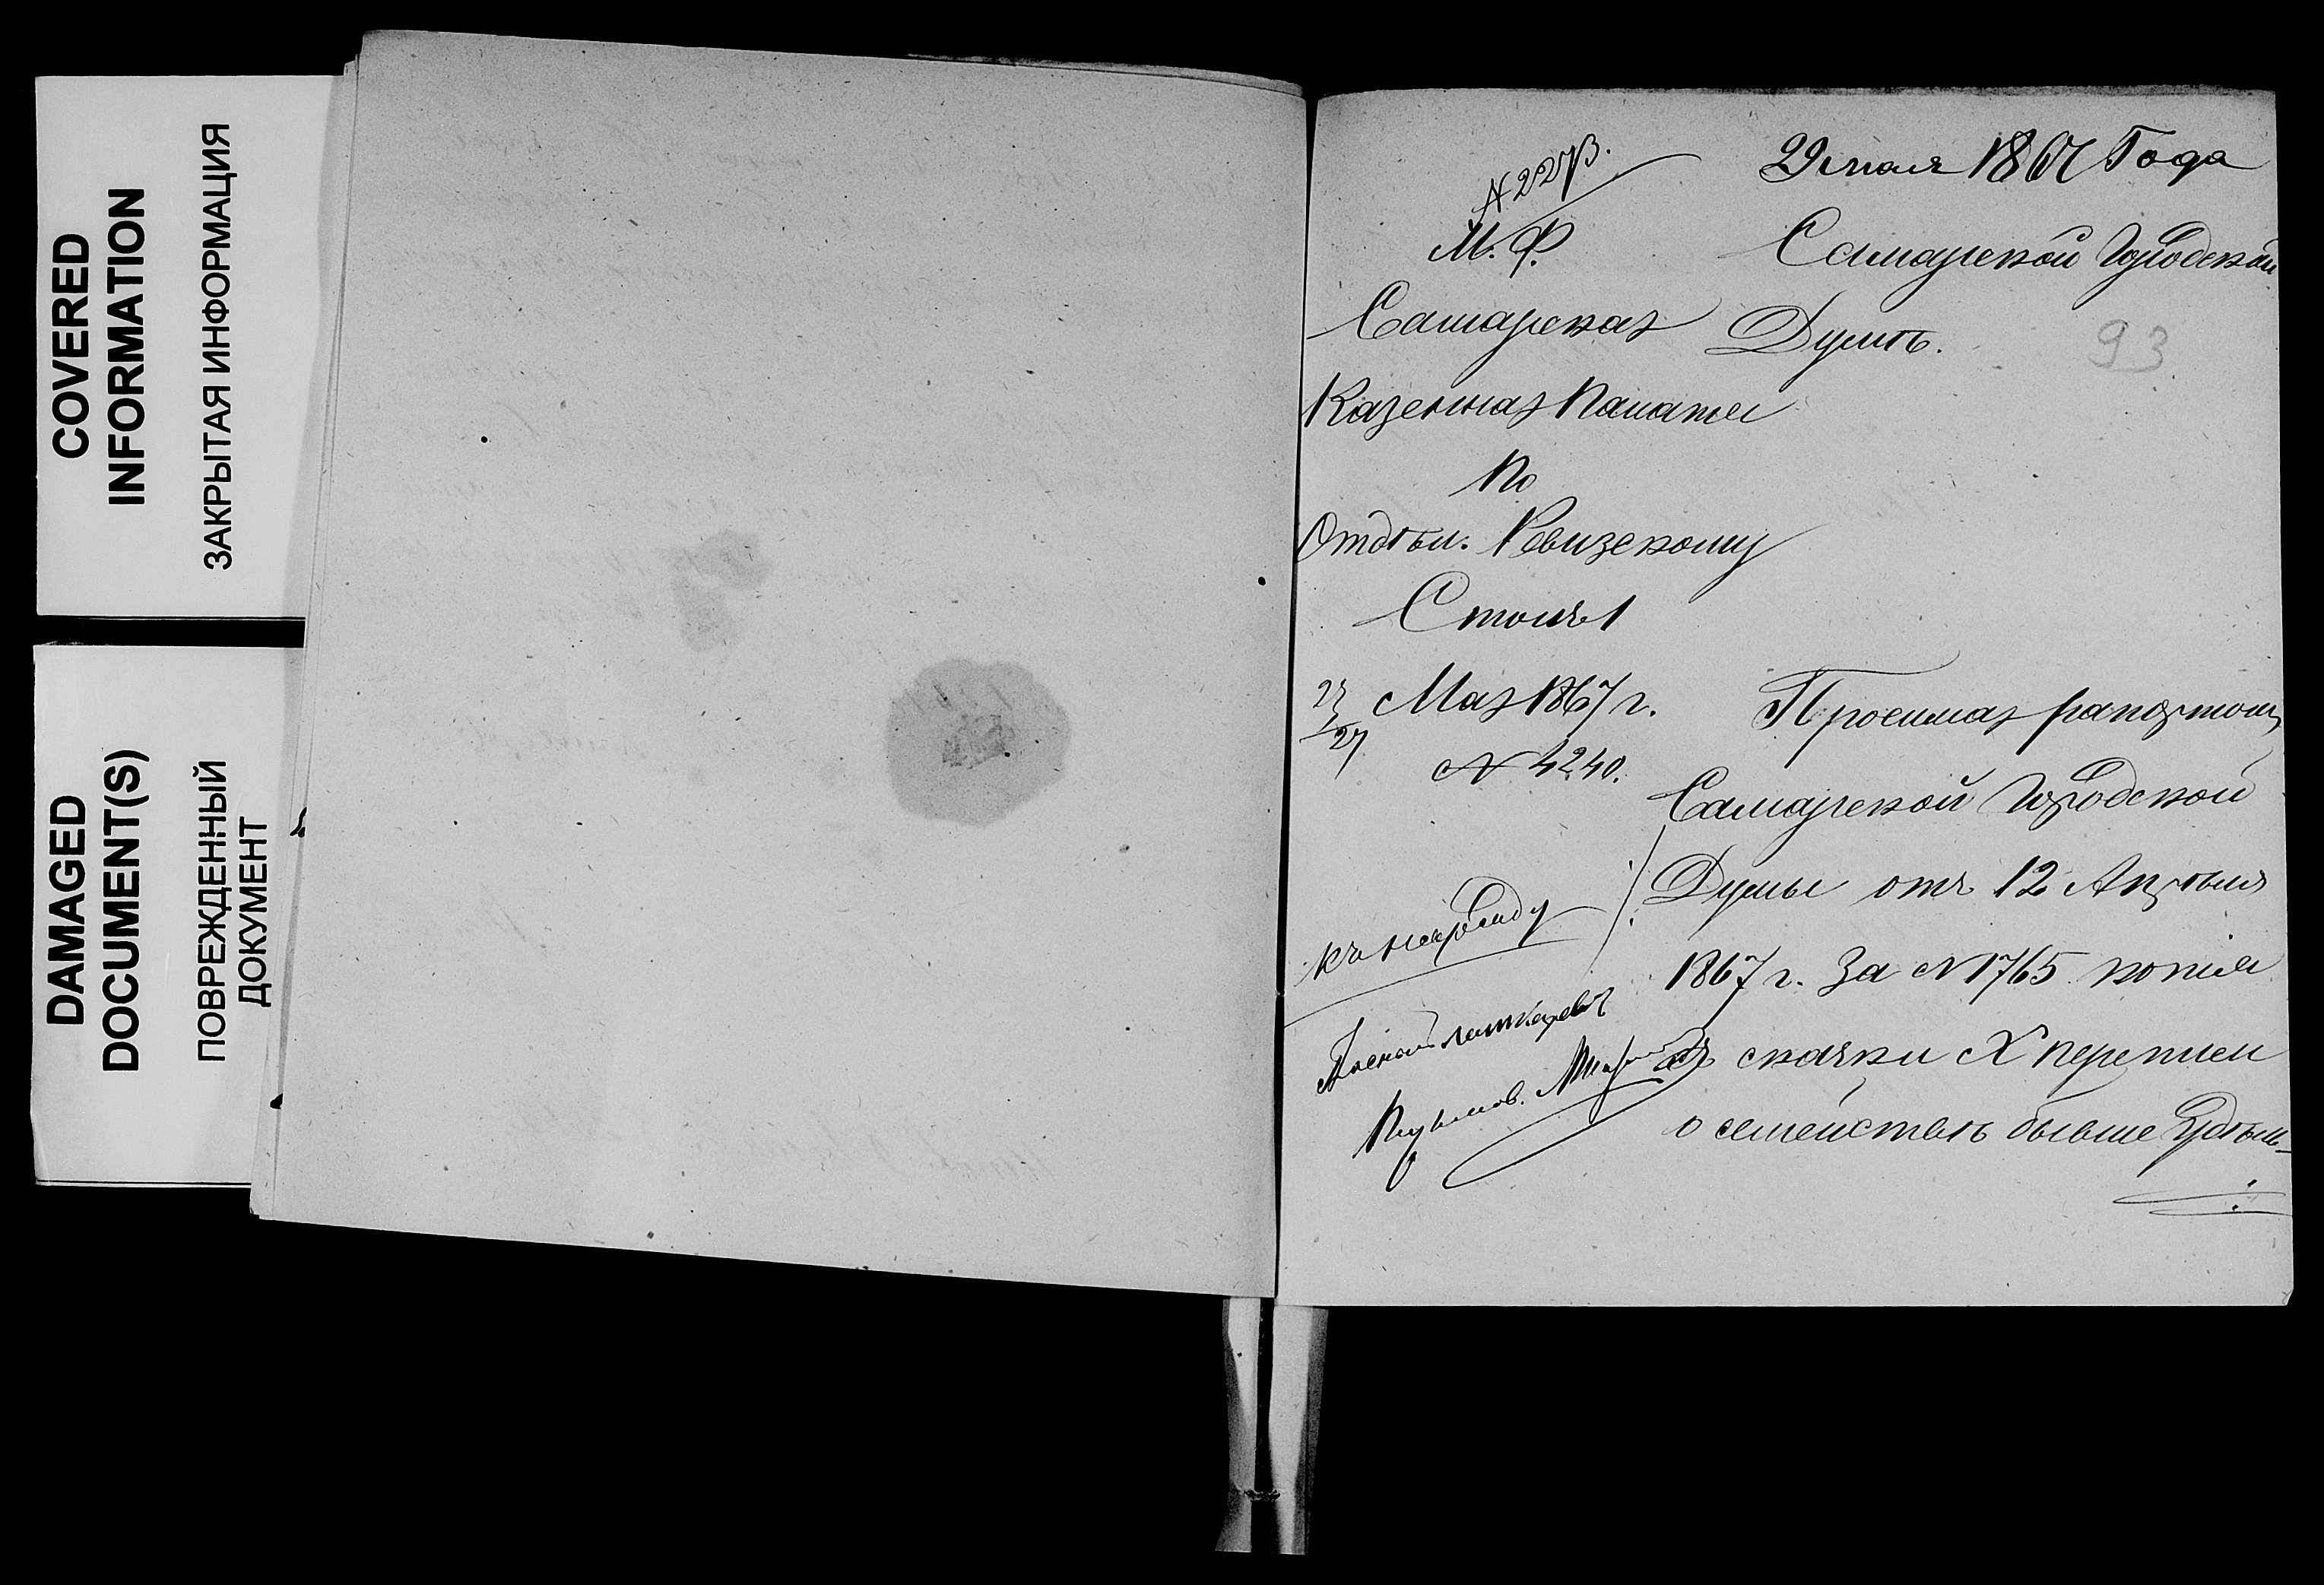 COVERED
INFORMATION
ЗАКРЫТАЯ ИНФОРМАЦИЯ
DAMAGED
DOCUMENT(S)
ПОВРЕЖДЕННЫЙ
ДОКУМЕНТ
М. Ф.
Самарская
Казенная Палата
По
Отдѣл. Ревизскому
Столъ 1
23/27 Мая 1867 г.
№ 4240.
Къ наряду
29 мая 1867 Года
Самарской Городской
Думѣ.
93
Просимая рапортом
Самарской Городской
Думы отъ 12 Апрѣля
1867 г. За № 1765 копiя
съ сказки X переписи
о семействѣ бывше Удѣль-